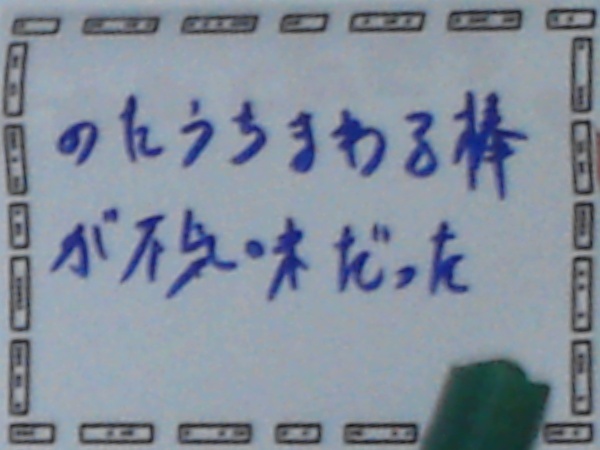 のたうちまわる棒
が不気味だった